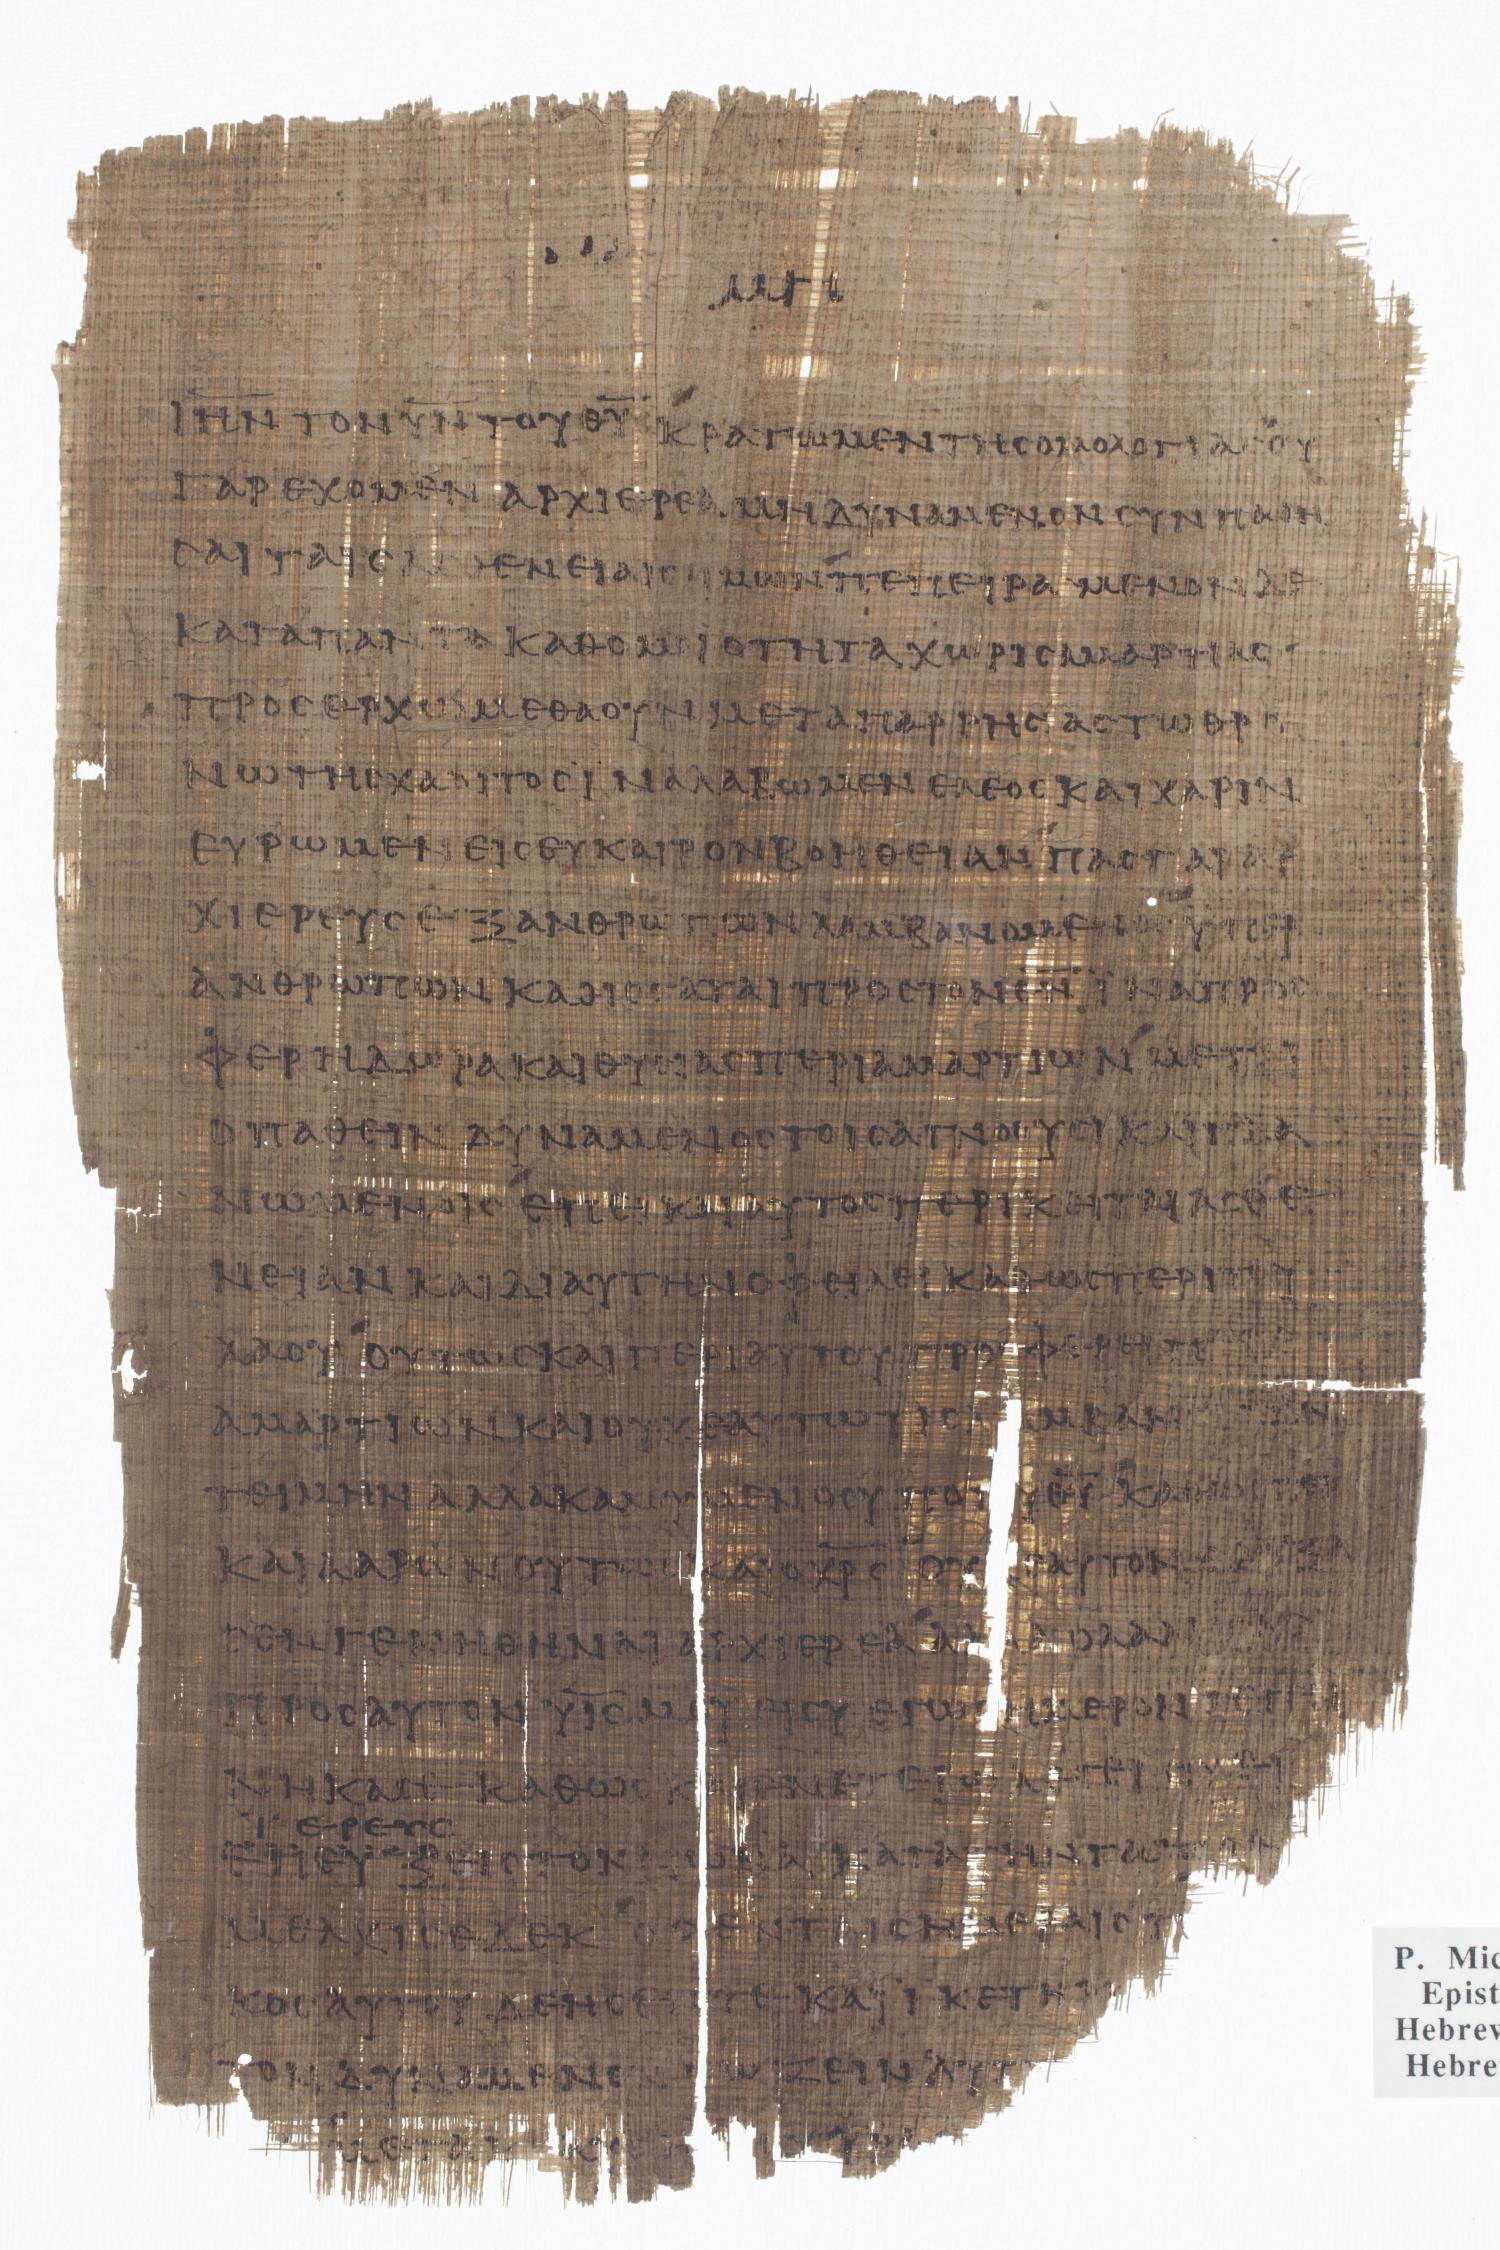 ΙΗΝ ΤΟΝ ΥΝ ΤΟΥ ΘΥ ΚΡΑΤΩΜΕΝ ΤΗΣ ΟΜΟΛΟΓΙΑΣ ΟΥ
ΓΑΡ ΕΧΟΜΕΝ ΑΡΧΙΕΡΕΑ ΜΗ ΔΥΝΑΜΕΝΟΝ ΣΥΝΠΑΘΗ
ΣΑΙ ΤΑΙΣ ΑΣΘΕΝΕΙΑΙΣ ΗΜΩΝ ΠΕΠΕΙΡΑΜΕΝΟΝ ΔΕ
ΚΑΤΑ ΠΑΝΤΑ ΚΑΘ ΟΜΟΙΟΤΗΤΑ ΧΩΡΙΣ ΑΜΑΡΤΙΑΣ
ΠΡΟΣΕΡΧΩΜΕΘΑ ΟΥΝ ΜΕΤΑ ΠΑΡΡΗΣΙΑΣ ΤΩ ΘΡΟ
ΝΩ ΤΗΣ ΧΑΡΙΤΟΣ ΙΝΑ ΛΑΒΩΜΕΝ ΕΛΕΟΣ ΚΑΙ ΧΑΡΙΝ
ΕΥΡΩΜΕΝ ΕΙΣ ΕΥΚΑΙΡΟΝ ΒΟΗΘΕΙΑΝ ΠΑΣ ΓΑΡ ΑΡ
ΧΙΕΡΕΥΣ ΕΞ ΑΝΘΡΩΠΩΝ ΛΑΜΒΑΝΟΜΕΝΟΣ ΥΠΕΡ
ΑΝΘΡΩΠΩΝ ΚΑΘΙΣΤΑΤΑΙ ΠΡΟΣ ΤΟΝ ΘΝ ΙΝΑ ΠΡΟΣ
ΦΕΡΗ ΔΩΡΑ ΚΑΙ ΘΥΣΙΑΣ ΠΕΡΙ ΑΜΑΡΤΙΩΝ ΜΕΤΡΙ
ΟΠΑΘΕΙΝ ΔΥΝΑΜΕΝΟΣ ΤΟΙΣ ΑΓΝΟΟΥΣΙ ΚΑΙ ΠΛΑ
ΝΩΜΕΝΟΙΣ ΕΠΕΙ ΚΑΙ ΑΥΤΟΣ ΠΕΡΙΚΕΙΤΑΙ ΑΣΘΕ
ΝΕΙΑΝ ΚΑΙ ΔΙ ΑΥΤΗΝ ΟΦΕΙΛΕΙ ΚΑΘΩΣ ΠΕΡΙ ΤΟΥ
ΛΑΟΥ ΟΥΤΩΣ ΚΑΙ ΠΕΡΙ ΑΥΤΟΥ ΠΡΟΣΦΕΡΕΙΝ
ΑΜΑΡΤΙΩΝ ΚΑΙ ΟΥΧ ΕΑΥΤΩ ΤΙΣ ΛΑΜΒΑΝΕΙ ΤΗΝ
ΤΕΙΜΗΝ ΑΛΛΑ ΚΑΛΟΥΜΕΝΟΣ ΥΠΟ ΤΟΥ ΘΥ ΚΑΘΩΣΠΕΡ
ΚΑΙ ΑΑΡΩΝ ΟΥΤΩΣ ΚΑΙ Ο ΧΡΣ ΟΥΧ ΕΑΥΤΟΝ ΕΔΟΞΑ
ΣΕΝ ΓΕΝΗΘΗΝΑΙ ΑΡΧΙΕΡΕΑ ΑΛΛΑ Ο ΛΑΛΗΣΑΣ
ΠΡΟΣ ΑΥΤΟΝ ΥΙΣ ΜΟΥ ΕΙ ΣΥ ΕΓΩ ΣΗΜΕΡΟΝ ΓΕΓΕΝ
ΝΗΚΑ ΣΕ ΚΑΘΩΣ ΚΑΙ ΕΝ ΕΤΕΡΩ ΛΕΓΕΙ ΣΥ ΕΙ
ΙΕΡΕΥΣ
ΕΠΕΥΞ ΕΙΣ ΤΟΝ ΑΙΩΝΑ ΚΑΤΑ ΤΗΝ ΤΑΞΙΝ
ΜΕΛΧΙΣΕΔΕΚ ΟΣ ΕΝ ΤΑΙΣ ΗΜΕΡΑΙΣ ΤΗΣ
ΚΟΣ ΑΥΤΟΥ ΔΕΗΣΕΙΣ ΤΕ ΚΑΙ ΙΚΕΤΗ
ΤΟΝ ΔΥΝΑΜΕΝΟΝ ΣΩΖΕΙΝ ΑΥΤ
ΜΕΤΑ ΚΡΑΥΓΗΣ
P. Mic
Epist
Hebrew
Hebrew